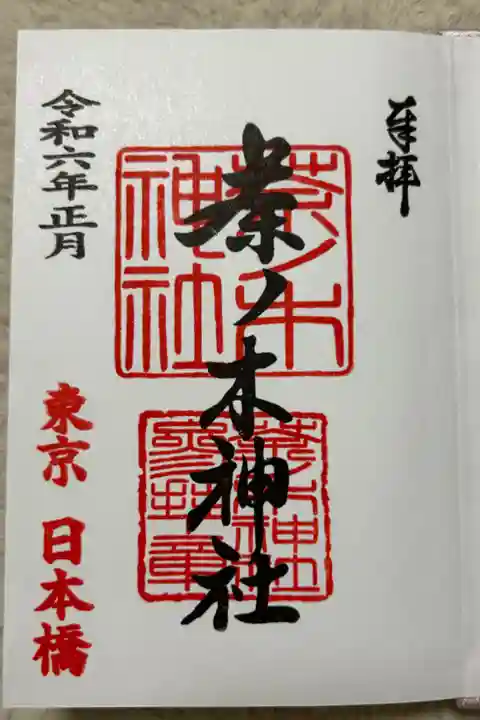 奉拝
茶ノ木神社
茶ノ木
神社
茶ノ木神社
参拝章
令和六年正月
東京 日本橋